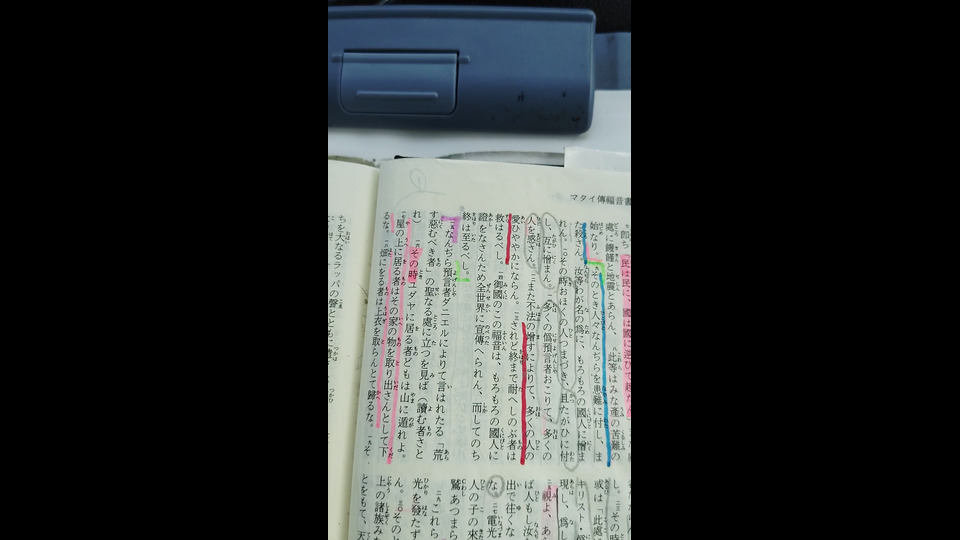 マタイ傳福音書
民は民に、國は國に逆ひて起たん
處に饑饉と地震とあらん、八此等はみな產の苦難の
始なり。九そのとき人々なんぢらを患難に付し、ま
た殺さん、汝等わが名の爲に、もろもろの國人に憎ま
れん。一〇その時おほくの人つまづき、且たがひに付
し、互に憎まん。一一多くの僞預言者おこりて、多くの
人を惑さん。一二また不法の增すによりて、多くの人の
愛ひややかにならん。一三されど終まで耐へしのぶ者は
救はるべし。一四御國のこの福音は、もろもろの國人に
證をなさんため全世界に宣傳へられん、而してのち
終は至るべし。
一五なんぢら預言者ダニエルによりて言はれたる「荒
す惡むべき者」の聖なる處に立つを見ば（讀む者さと
れ）一六その時ユダヤに居る者どもは山に遁れよ。
一七屋の上に居る者はその家の物を取り出さんとして下
るな。一八畑にをる者は上衣を取らんとて歸るな。一九そ
し。二三その時
或は「此處に
キリスト・僞
現し、爲し
視よ、あ
ば人もし汝
出で往くな
な。二七電光
人の子の來
鷲あつまら
二九これら
光を發たず
ん。三〇そのと
上の諸族み
とをもて、天
ちを大なるラッパの聲とともに